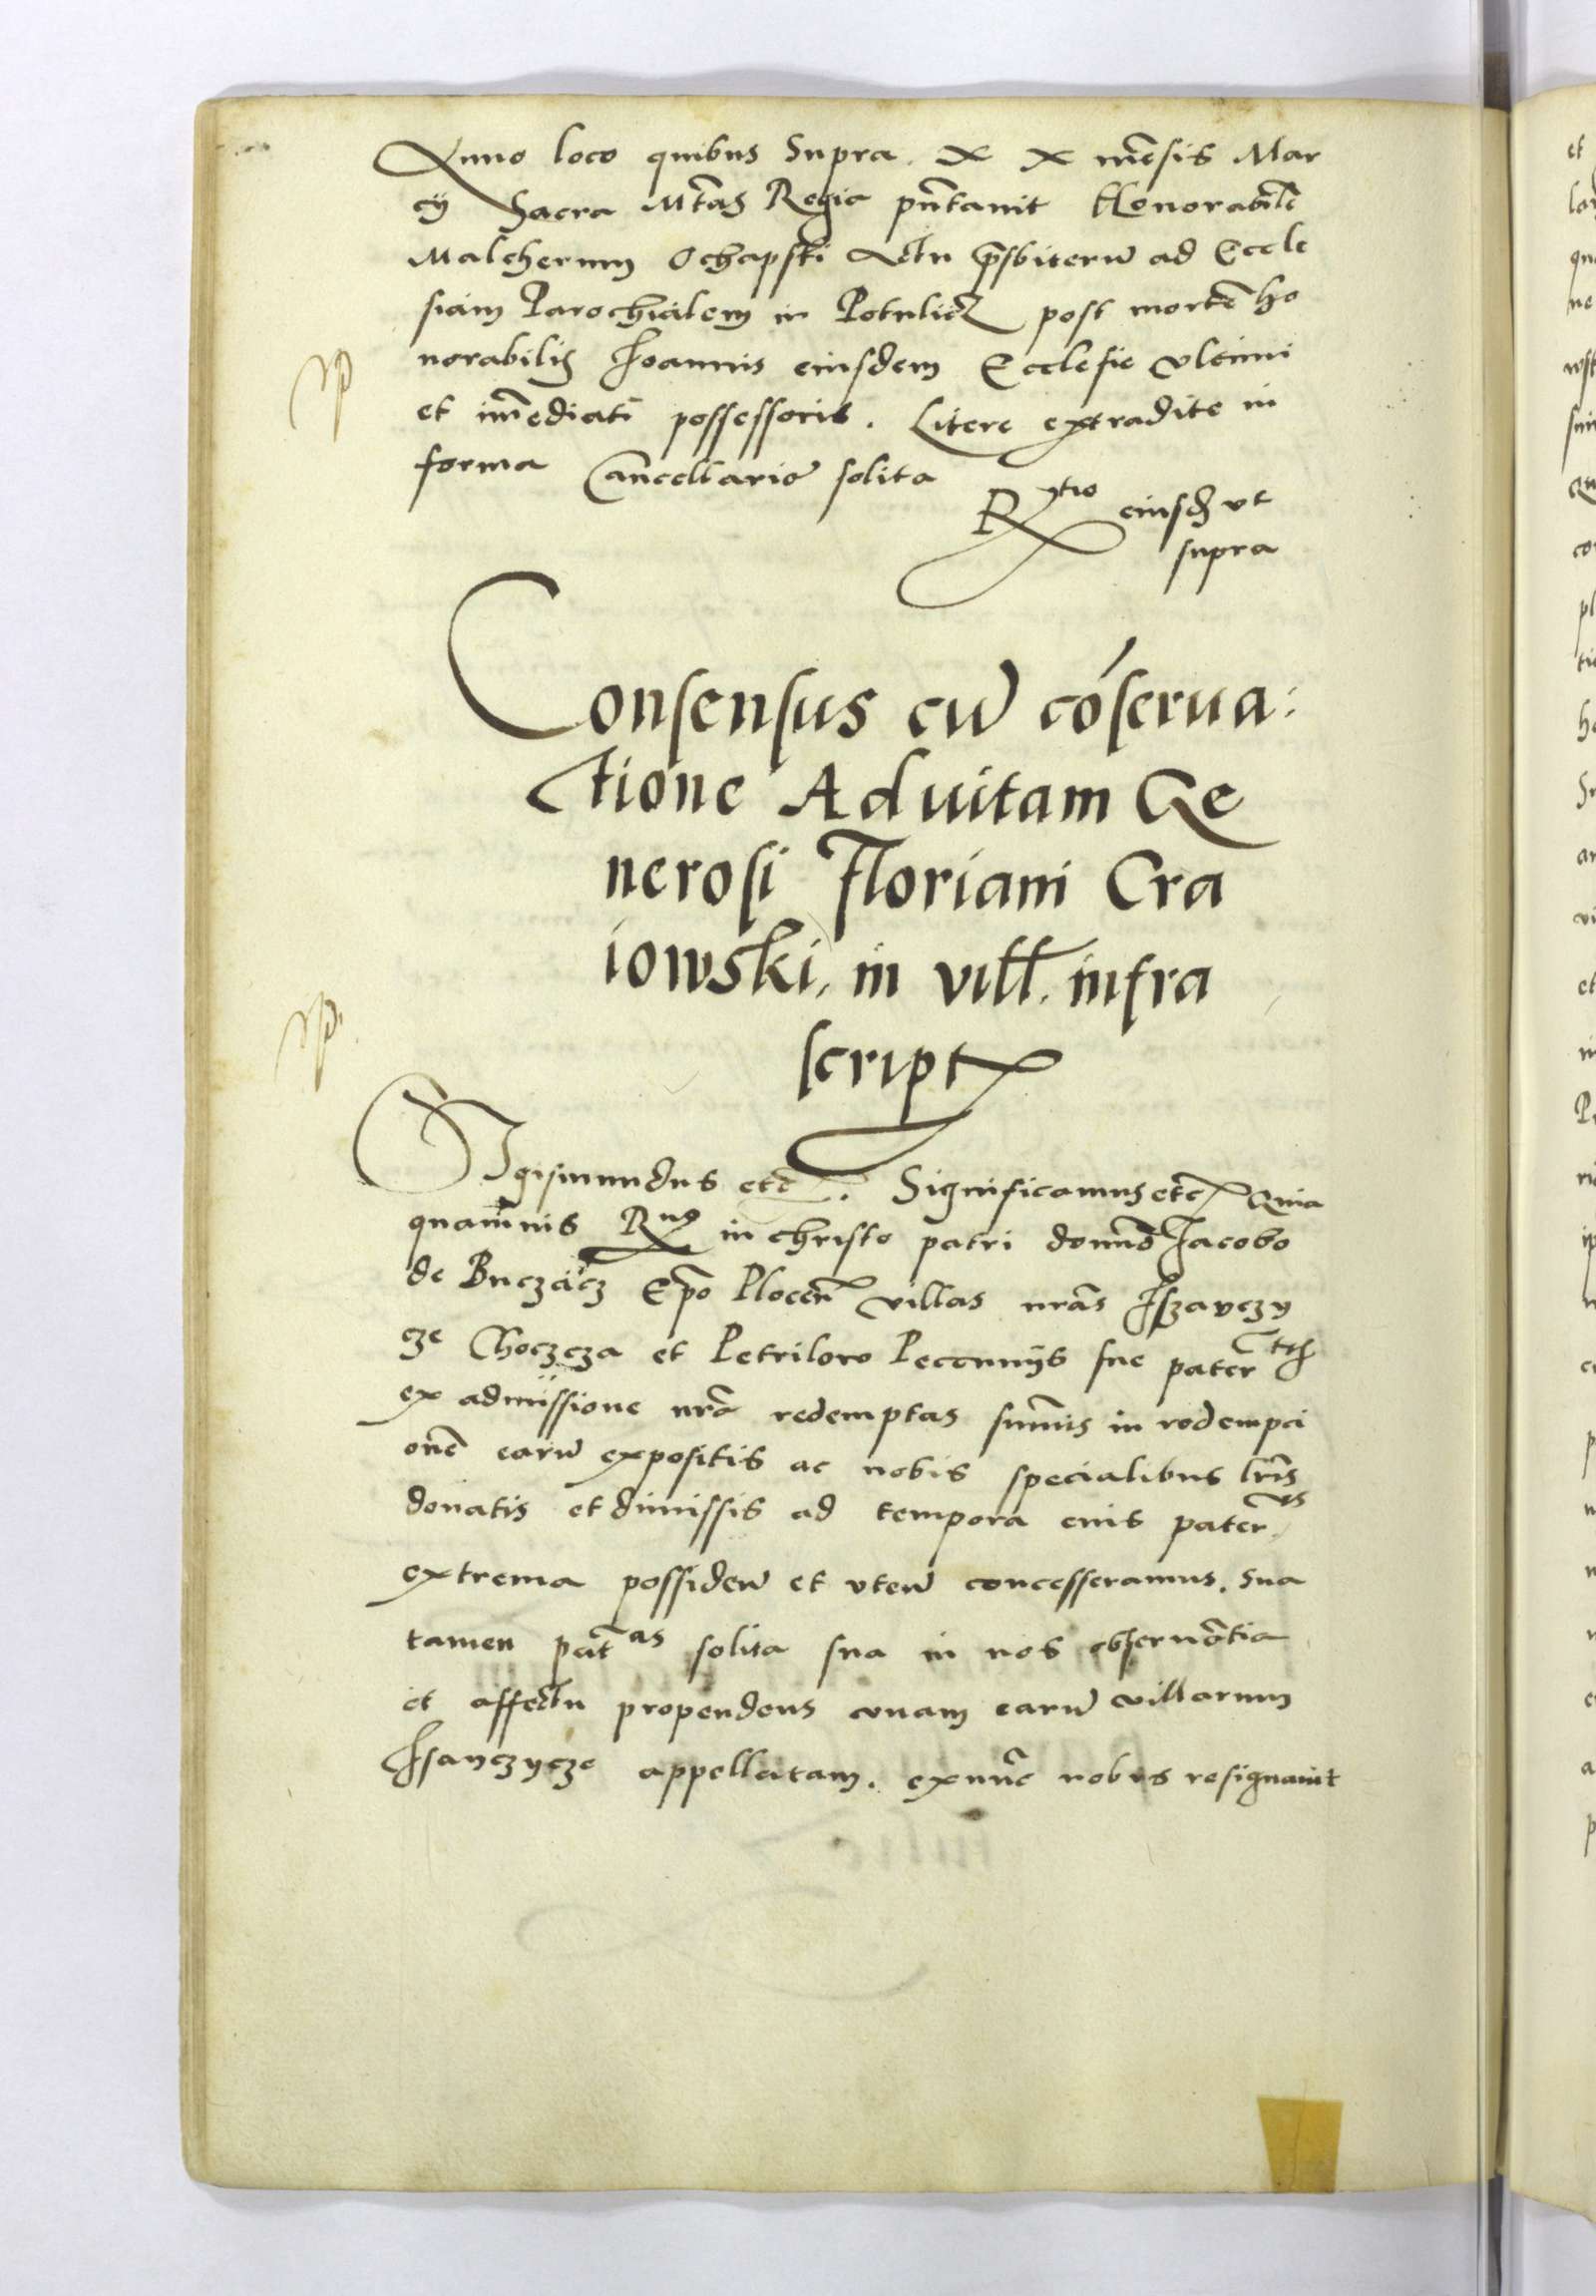 Anno loco quibus Supra. X X mēsis Mar
cij Sacra Mt̄as Regia pn̄tauit Honorabilē
Malcherum Ochapski Actu pr̄sbiterū ad Eccle
siam Parochialem in Potulicz post mortē ho
norabilis Joannis eiusdem Ecclesie vltimi
et im̄ediati possessoris. Litere extradite in
forma Cancellarie solita
R^tio eiusd vt
supra
Consensus cū cōserua:
tione Ad uitam Ge
nerosi Floriani Cra
iowski, in vill. infra
script
Sigismundus etc. Significamus etc Quia
quamuis R^no in christo patri domino Jacobo
de Buczacz Ep̄o Plocen̄ villas nr̄as Iszayczy
cze Choczcza et Petriloro Peccunijs sue pater^tis
ex admissione nr̄a redemptas sum̄is in redempci
onē earū expositis ac nobis specialibus lr̄is
donatis et dimissis ad tempora eius pater^tis
extrema possiden̄ et vten̄ concesseramus. Sua
tamen pat^as solita sua in nos obseruātia
et affectu propendens vnam earū villarum
Isayczycze appellatam. exnūc nobis resignauit